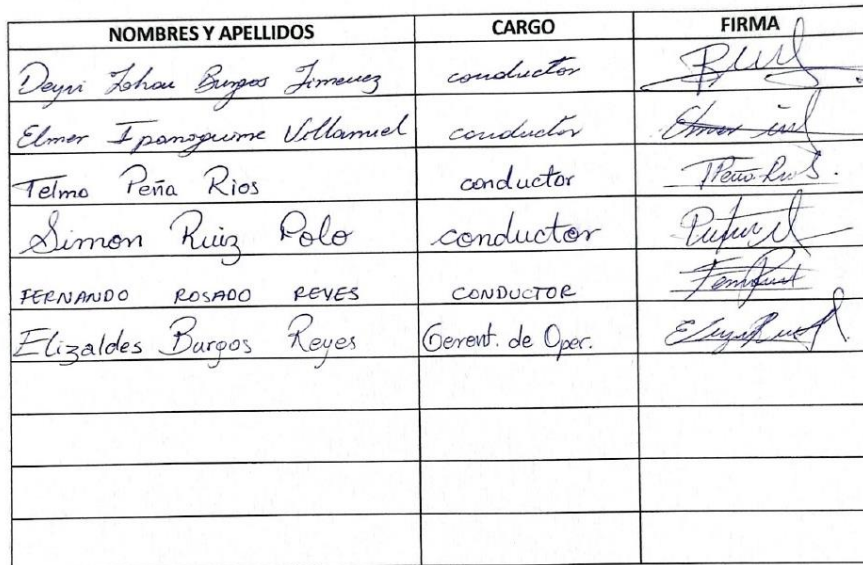 NOMBRES Y APELLIDOS CARGO FIRMA
Deyvi Johan Burgos Jimenez conductor
Elmer Ipanaguirre Villarruel conductor
Telmo Peña Rios conductor TPeña Rios.
Simon Ruiz Polo conductor
FERNANDO ROSADO REYES CONDUCTOR
Elizaldes Burgos Reyes Gerent. de Oper.